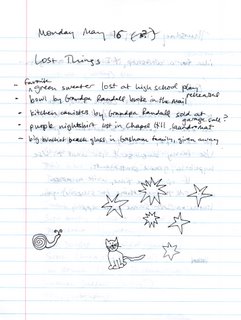 Monday May 16
Lost Things
favorite
- green sweater lost at high school play
rehearsal
- bowl by Grandpa Randall broke in the mail
- kitchen canisters by Grandpa Randall sold at
garage sale?
- purple nightshirt lost in Chapel Hill laundromat
- big bracket beach glass in Graham family, given away